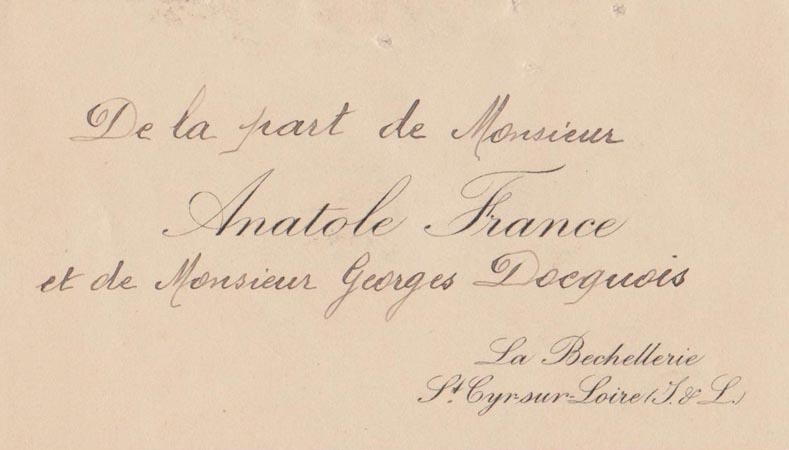 De la part de Monsieur
Anatole France
et de Monsieur Georges Docquois
La Bechellerie
St Cyr-sur-Loire (I. & L.)